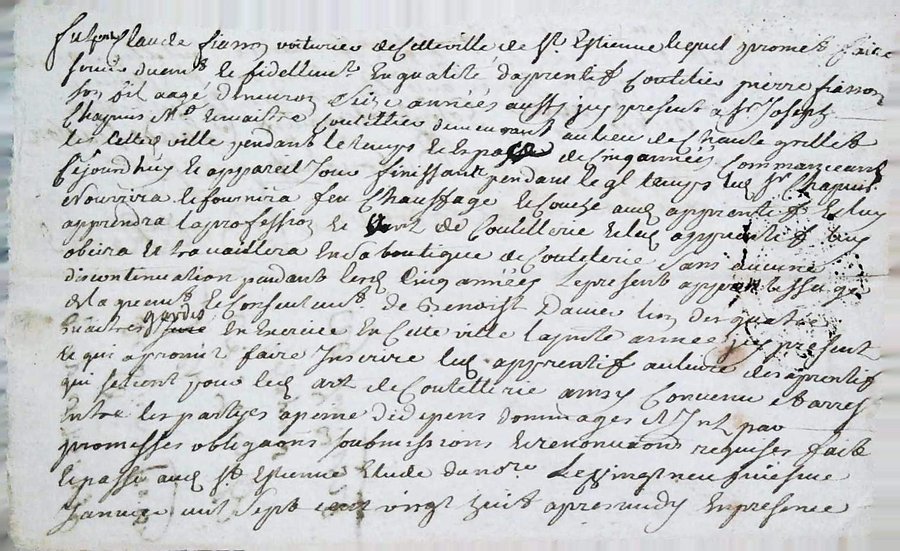 fut pnt Claude fiasson voiturier de cette ville de St Estienne lequel promet faire
servir duemt et fidellemt En qualité d'aprentif Coutelier pierre fiasson
son fils aagé d'environ Seize années aussy icy present a Sr Joseph
Chapuis Md Et maitre Coutellier demeurant au lieu de Chante grillet
les cette ville pendant le temps et Espace de Cinq années Commanceant
Cejourdhuy Et a pareil Jour finissant pendant leql temps led Sr Chapuis
Nourrira Et fournira feu Chauffage Et Couche aud apprentif Et luy
apprendra la profession Et art de Coutellerie Et led apprentif luy
obeira Et travaillera En sa boutique de Coutelerie Sans aucune
discontinuation pendant lesd Cinq années Le present apprentissage
Est agreemt Et Consentemt de Benoist Dame l'un des quatre
maitres gardes En Exercice En Cette ville la pnte année icy present
Et qui a promit faire Inscrire led apprentif au livre des aprentif
qui seront pour led art de Coutellerie ainsy Convenu Et arresté
Entre les parties a peine de depens dommages Et Int par
promesses obligaons soubmissions Et renonciaons requises fait
Et passé aud St Estienne Etude du nore Le vingt neufviesme
Janvier mil Sept cent vingt huit apres midy En presence